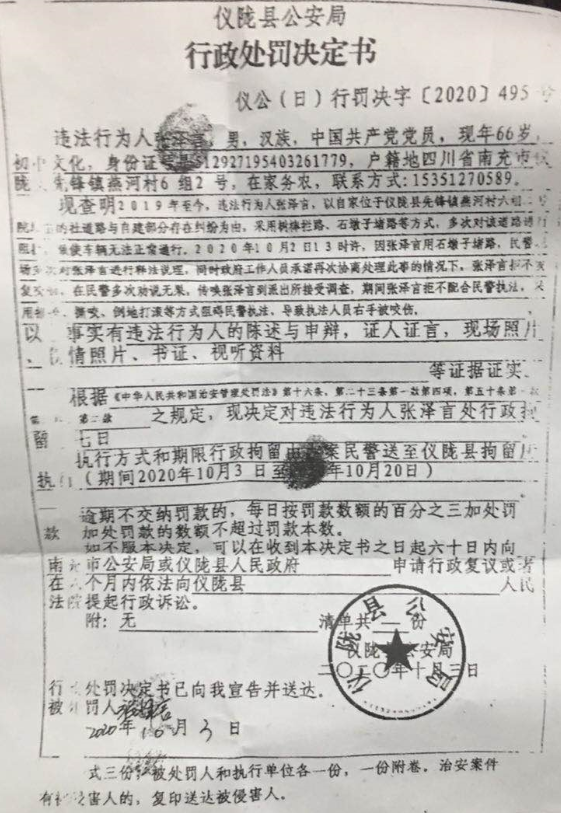 仪陇县公安局
行政处罚决定书
仪公(日)行罚决字〔2020〕495号
违法行为人张泽言,男,汉族,中国共产党党员,现年66岁,
初中文化,身份证号512927195403261779,户籍地四川省南充市仪
陇 先锋镇燕河村6组2号,在家务农,联系方式:15351270589.
现查明2019年至今,违法行为人张泽言,以自家位于仪陇县先锋镇燕河村六组二号
院 的社道路与自建部分存在纠纷为由,采用树棒拦路、石墩子堵路等方式,多次对该道路进行
阻 ,致使车辆无法正常通行。2020年10月2日13时许,因张泽言用石墩子堵路,民警
场多次对张泽言进行释法说理,同时政府工作人员承诺再次协商处理此事的情况下,张泽言拒不
复 ,在民警多次劝说无果,传唤张泽言到派出所接受调查,期间张泽言拒不配合民警执法,采
用 、撕咬、倒地打滚等方式阻碍民警执法,导致执法人员右手被咬伤。
以 事实有违法行为人的陈述与申辩,证人证言,现场照片
、 情照片、书证、视听资料
等证据证实。
根据《中华人民共和国治安管理处罚法》第十六条,第二十三条第一款第四项,第五十条第一款
第二款 之规定,现决定对违法行为人张泽言处行政拘
留 七日
执行方式和期限行政拘留由 案民警送至仪陇县拘留所
执行(期间2020年10月3日至 年10月20日)
逾期不交纳罚款的,每日按罚款数额的百分之三加处罚
款 加处罚款的数额不超过罚款本数。
如不服本决定,可以在收到本决定书之日起六十日内向
南充市公安局或仪陇县人民政府 申请行政复议或者
在六个月内依法向仪陇县 人民
法院提起行政诉讼。
附:无 清单共 份
仪陇县公安局
二〇二〇年十月三日
行政处罚决定书已向我宣告并送达。
被处罚人
2020年10月3日
一式三份,被处罚人和执行单位各一份,一份附卷。治安案件
有被侵害人的,复印送达被侵害人。
仪陇县公安局